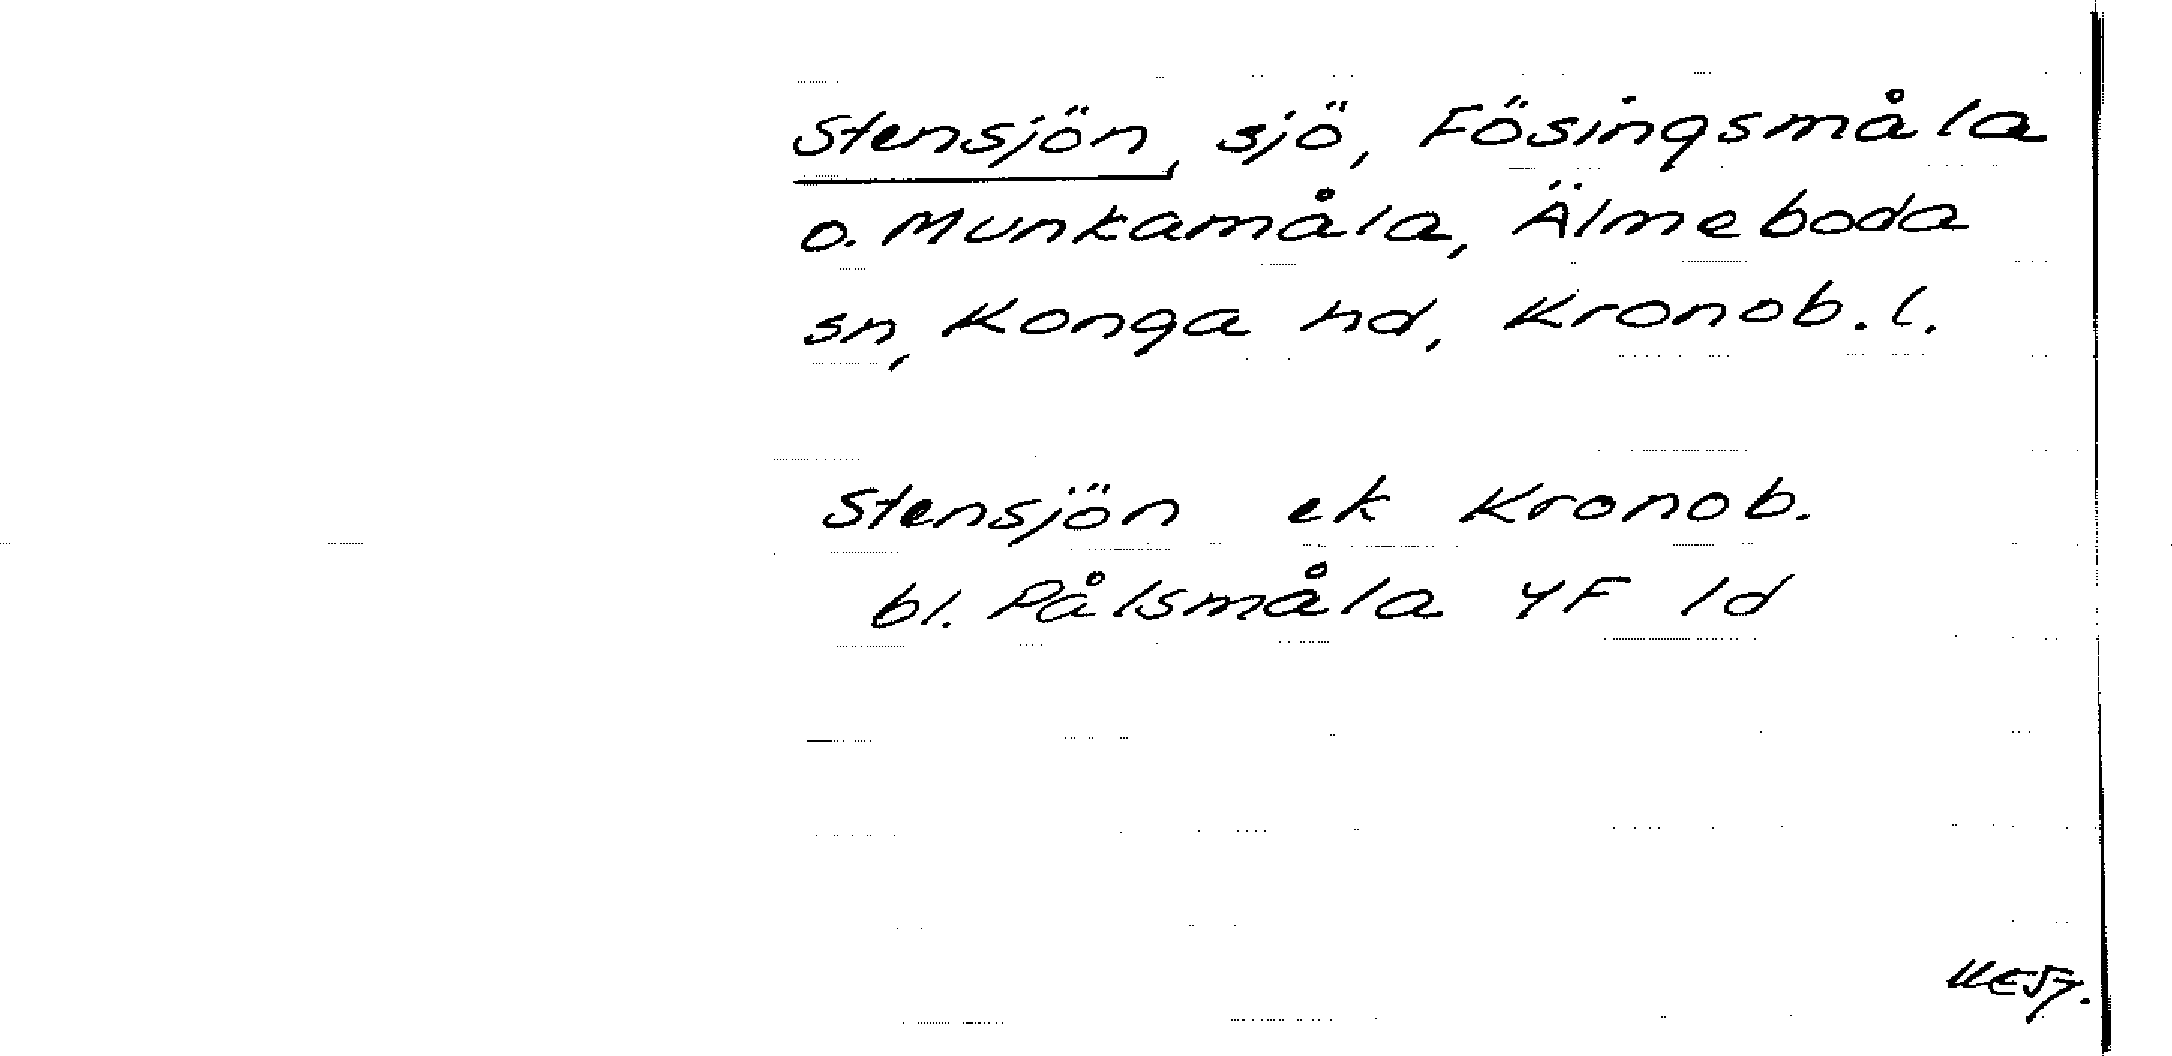 Stensjön, sjö, Fösingsmåla
o. Munkamåla, Älmeboda
sn, Konga hd, Kronob. l.
Stensjön ek Kronob.
bl. Pålsmåla 4F 1d